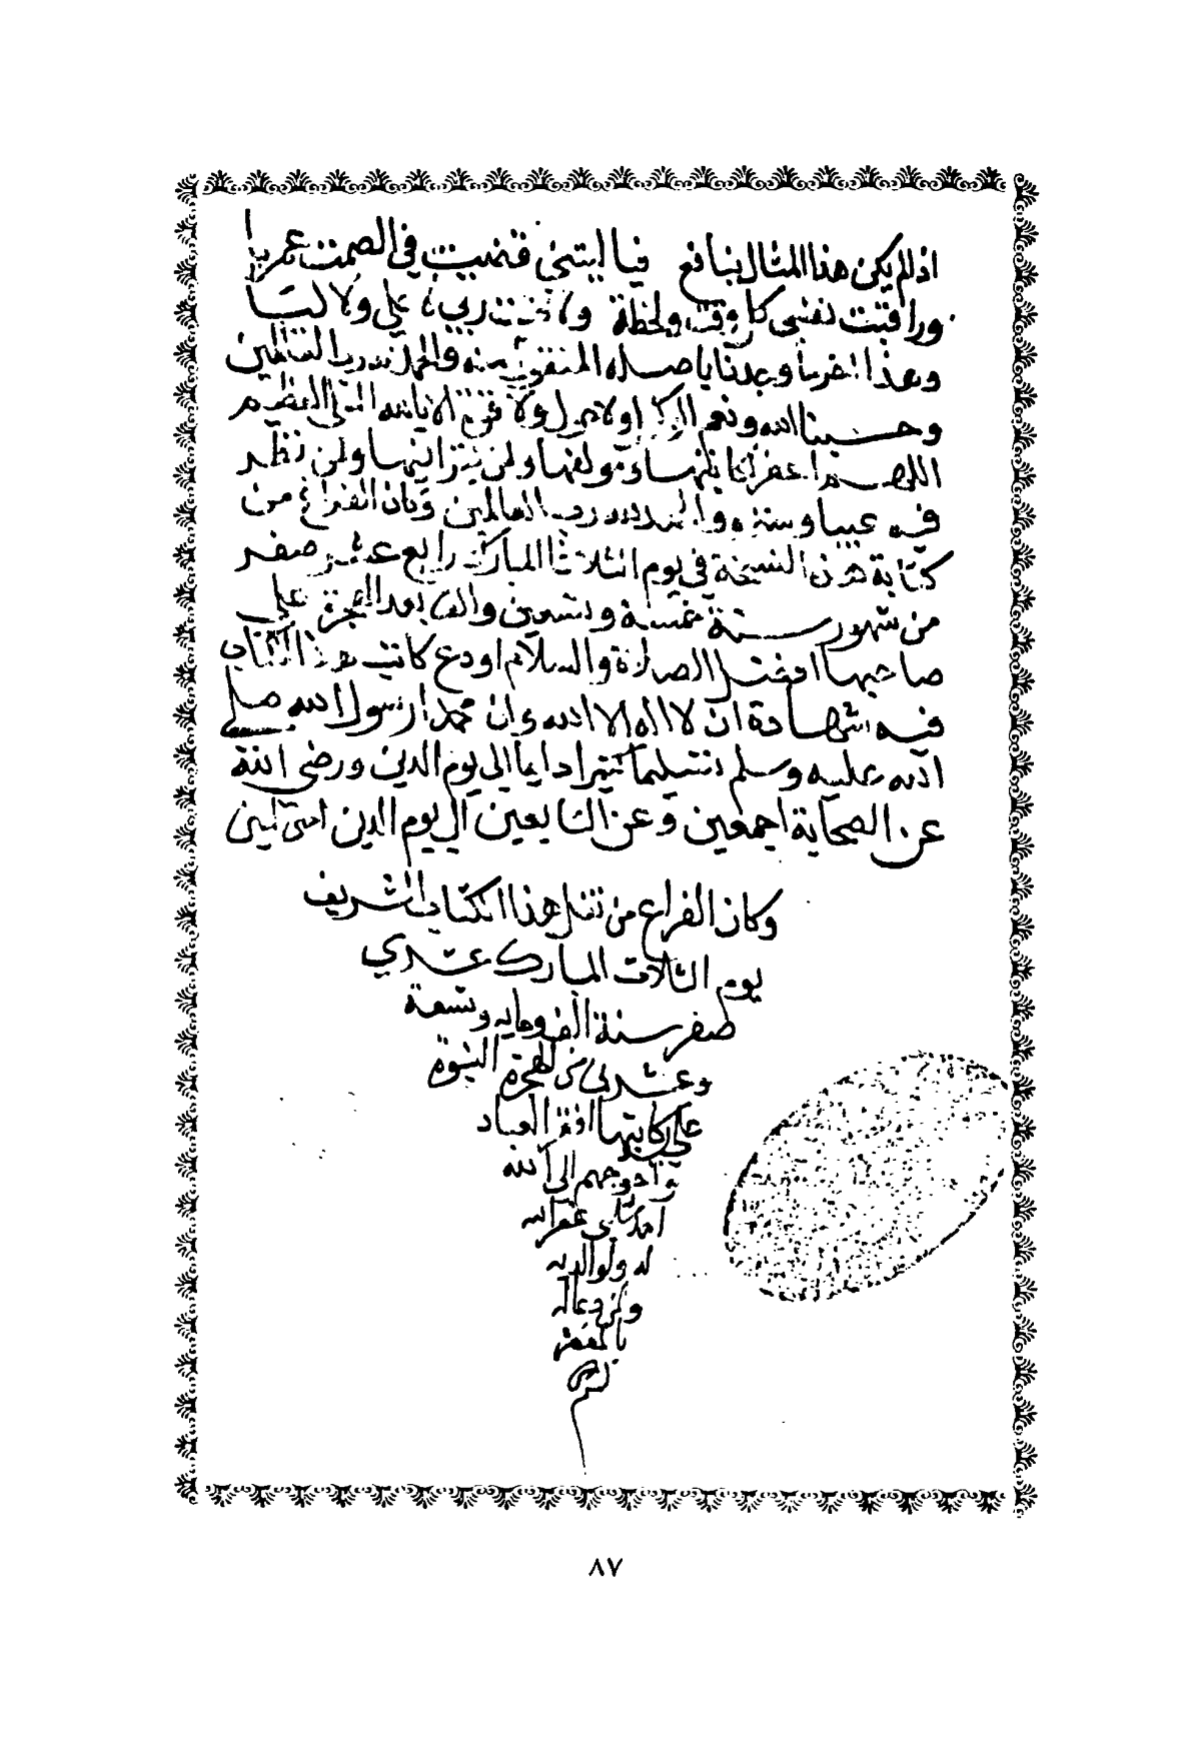 اذ لم يكن هذا المثال بنافع فيا ليتني قضيت في الصمت عمريا
وراقبت نفسي كل وقت ولحظة ولا علي ولا ليا
وهذا اخر ما وجدنا باصله المنقول منه والحمد لله رب العالمين
وحسبنا الله ونعم الوكيل ولا حول ولا قوة الا بالله العلي العظيم
اللهم اغفر لكاتبها ومولفها ولمن قرا فيها ولمن نظر
فيه عيبا وستره والحمد لله رب العالمين وكان الفراغ من
كتابة هذه النسخة في يوم الثلاثا المبارك رابع عشر صفر
من شهور سنة خمسة وتسعين والف بعد الهجرة علي
صاحبها افضل الصلاة والسلام اودع كاتب هذا الكتاب
فيه شهادة ان لا اله الا الله وان محمدا رسول الله صلي
الله عليه وسلم تسليما كثيرا دايما الي يوم الدين ورضي الله
عن الصحابة اجمعين وعن التابعين الي يوم الدين امين امين
وكان الفراع من نقل هذا الكتاب الشريف
يوم الثلاث المبارك عشري
صفر سنة الف ومايه وتسعة
وعشرين من الهجرة النبوة
علي كاتبها افقر العباد
واحوجهم الى الله
احمد غفر الله
له ولوالديه
ولمن دعا له
بالمغفرة
٨٧